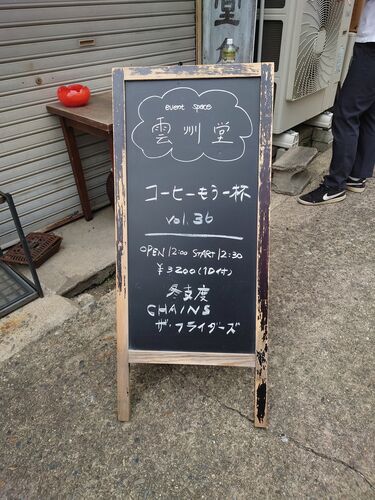 event space
雲州堂
コーヒーもう一杯
vol.36
OPEN 12:00 START 12:30
¥3200(1D付)
冬支度
CHAINS
ザ・フライダーズ
堂